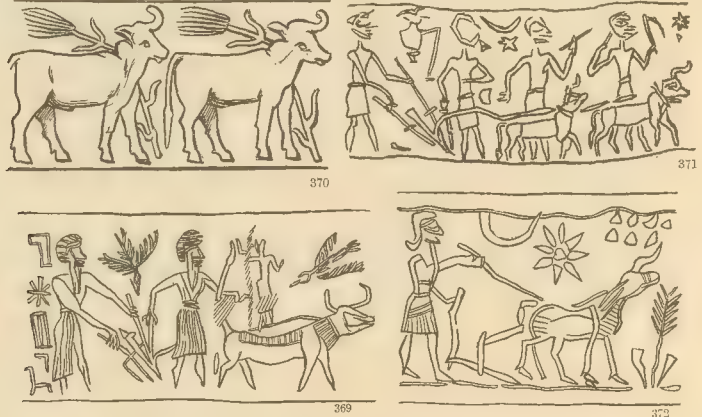 370
371
369
372